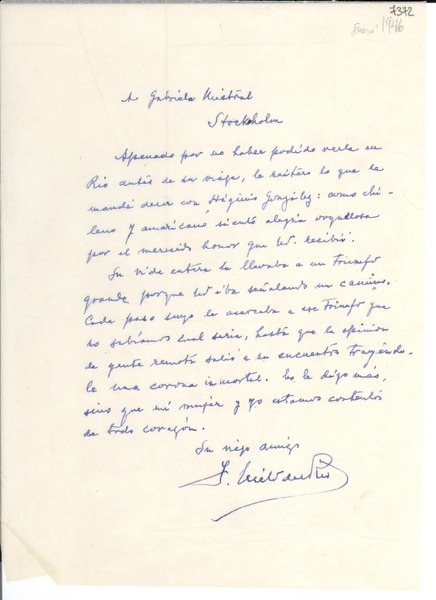 7372
Enero 1946
A Gabriela Mistral
Stockholm
Apenado por no haber podido verla en
Rio antes de su viaje, le reitero lo que le
mandé decir con Higinio González: como chi-
leno y americano siento alegría orgullosa
por el merecido honor que Ud. recibió.
Su vida entera la llevaba a un Triunfo
grande porque Ud iba señalando un camino.
Cada paso suyo la acercaba a ese Triunfo que
no sabíamos cual sería, hasta que la opinion
de gente remota salió a su encuentro trayéndo-
le una corona inmortal. No le digo más,
sino que mi mujer y yo estamos contentos
de todo corazón.
Su viejo amigo
F. Nieto del Río